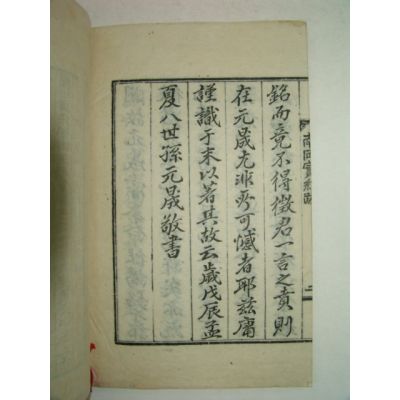 銘而竟不得徵君一言之賁則
在元晟尤非所可憾者耶兹庸
謹識于末以著其故云歲戊辰孟
夏八世孫元晟敬書